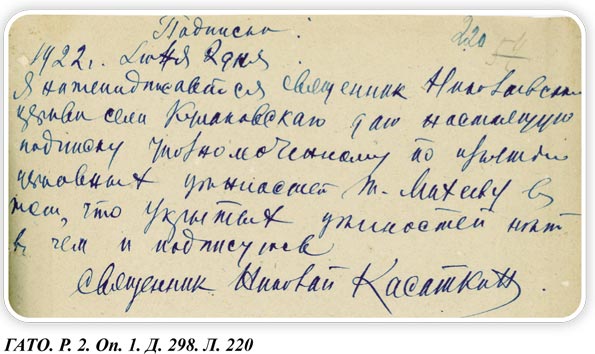 Подписка.
220
1922 г. Июня 2 дня.
Я нижеподписавшийся священник Николаевской
церкви села Кулаковскаго даю настоящую
подписку уполномоченному по изъятию
церковных ценностей т. Михееву в
том, что укрытых ценностей нет
в чем и подписуюсь
священник Николай Касаткин.
ГАТО. Р. 2. Оп. 1. Д. 298. Л. 220